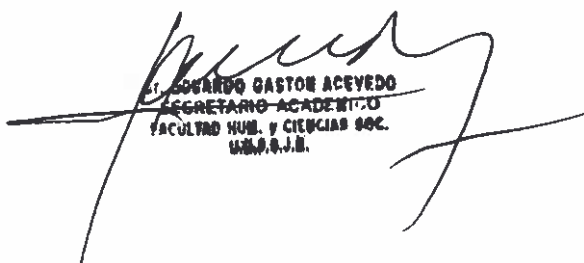 EDUARDO GASTON ACEVEDO
SECRETARIO ACADEMICO
FACULTAD HUM. y CIENCIAS SOC.
U.N.P.S.J.B.